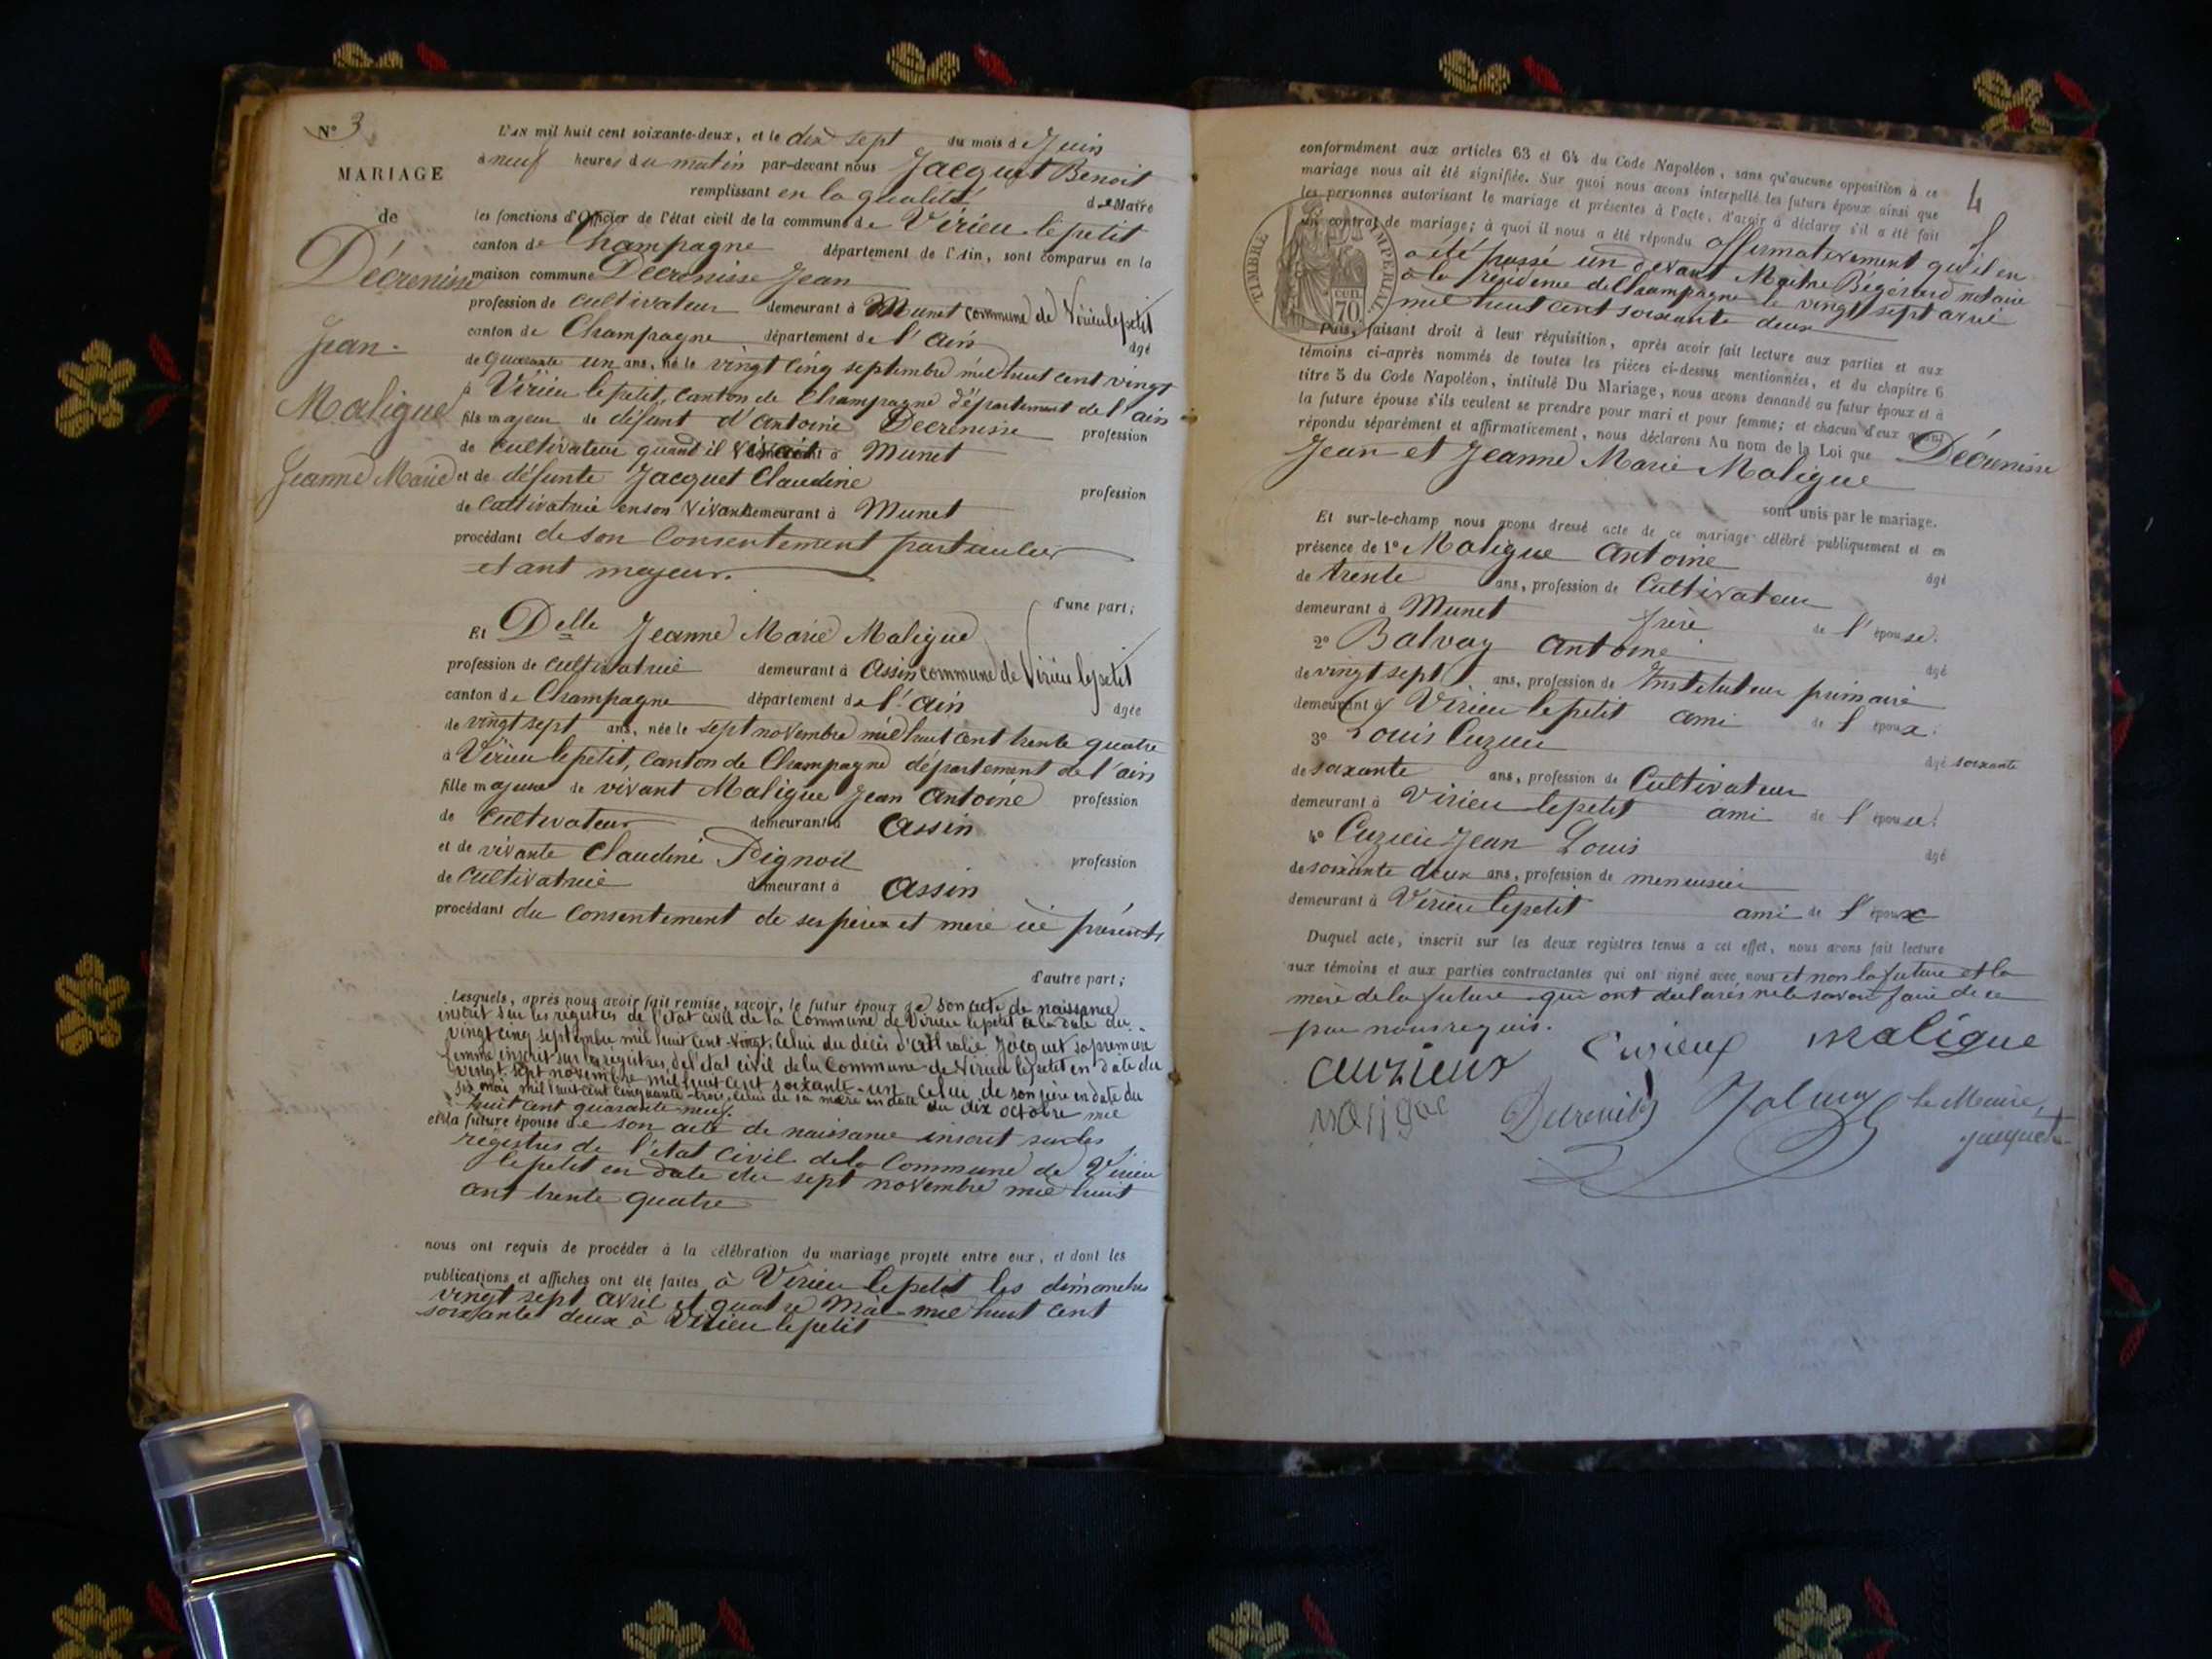 N° 3
MARIAGE
de
Décrenisse
Jean
Maligue
Jeanne Marie
L'AN mil huit cent soixante-deux, et le dix sept du mois de Juin
à neuf heures du matin par-devant nous Jacquet Benoit
remplissant en la qualité de Maire
les fonctions d'Officier de l'état civil de la commune de Virieu le petit
canton de Champagne département de l'Ain, sont comparus en la
maison commune Décrenisse Jean
profession de cultivateur demeurant à Munet commune de Virieu le petit
canton de Champagne département de l'ain âgé
de quarante un ans, né le vingt cinq septembre mil huit cent vingt
à Virieu le petit, canton de Champagne département de l'ain
fils majeur de défunt d'antoine Decrenisse profession
de cultivateur quand il vivait à Munet
et de défunte Jacquet Claudine profession
de cultivatrice en son vivant demeurant à Munet
procédant de son consentement particulier
etant majeur.
d'une part;
Et Delle Jeanne Marie Maligue
profession de cultivatrice demeurant à Assin commune de Virieu le petit
canton de Champagne département de l'ain âgée
de vingt sept ans, née le sept novembre mil huit cent trente quatre
à Virieu le petit, canton de Champagne département de l'ain
fille majeure de vivant Maligue Jean Antoine profession
de cultivateur demeurant à Assin
et de vivante Claudine Pignoil profession
de cultivatrice demeurant à Assin
procédant du consentement de ses père et mère ici présents
d'autre part;
Lesquels, après nous avoir fait remise, savoir, le futur époux de son acte de naissance
inscrit sur les registres de l'état civil de la Commune de Virieu le petit à la date du
vingt cinq septembre mil huit cent vingt, celui du décès d'athalie Jacquet sa première
femme inscrit sur les registres de l'état civil de la Commune de Virieu le petit en date du
vingt sept novembre mil huit cent soixante-un celui de son père en date du
six mai mil huit cent cinquante-trois, celui de sa mère en date du dix octobre mil
huit cent quarante neuf.
et la future épouse de son acte de naissance inscrit sur les
registres de l'état civil de la Commune de Virieu
le petit en date du sept novembre mil huit
cent trente quatre
nous ont requis de procéder à la célébration du mariage projeté entre eux, et dont les
publications et affiches ont été faites à Virieu le petit les dimanches
vingt sept avril et quatre Mai mil huit cent
soixante deux à Virieu le petit
4
conformément aux articles 63 et 64 du Code Napoléon, sans qu'aucune opposition à ce
mariage nous ait été signifiée. Sur quoi nous avons interpellé les futurs époux ainsi que
les personnes autorisant le mariage et présentes à l'acte, d'avoir à déclarer s'il a été fait
un contrat de mariage; à quoi il nous a été répondu affirmativement qu'il en
a été passé un devant Maître Bégérard notaire
à la résidence de Champagne le vingt sept avril
mil huit cent soixante deux
TIMBRE IMPERIAL
70
Puis, faisant droit à leur réquisition, après avoir fait lecture aux parties et aux
témoins ci-après nommés de toutes les pièces ci-dessus mentionnées, et du chapitre 6
titre 5 du Code Napoléon, intitulé Du Mariage, nous avons demandé au futur époux et à
la future épouse s'ils veulent se prendre pour mari et pour femme; et chacun d'eux ayant
répondu séparément et affirmativement, nous déclarons Au nom de la Loi que Décrenisse
Jean et Jeanne Marie Maligue
sont unis par le mariage.
Et sur-le-champ nous avons dressé acte de ce mariage célébré publiquement et en
présence de 1° Maligue Antoine âgé
de trente ans, profession de cultivateur
demeurant à Munet frère de l'épouse.
2° Balvay Antoine âgé
de vingt sept ans, profession de Instituteur primaire
demeurant à Virieu le petit ami de l'époux.
3° Louis Cuzieu âgé soixante
de soixante ans, profession de Cultivateur
demeurant à Virieu le petit ami de l'épouse.
4° Cuzieu Jean Louis âgé
de soixante deux ans, profession de menuisier
demeurant à Virieu le petit ami de l'époux
Duquel acte, inscrit sur les deux registres tenus à cet effet, nous avons fait lecture
aux témoins et aux parties contractantes qui ont signé avec nous et non la future et la
mère de la future qui ont déclarés ne le savoir faire de ce
par nous requis.
cuzieux Cuzieux Maligue
Maligue Decrenisse Balvay Le Maire,
Jacquet